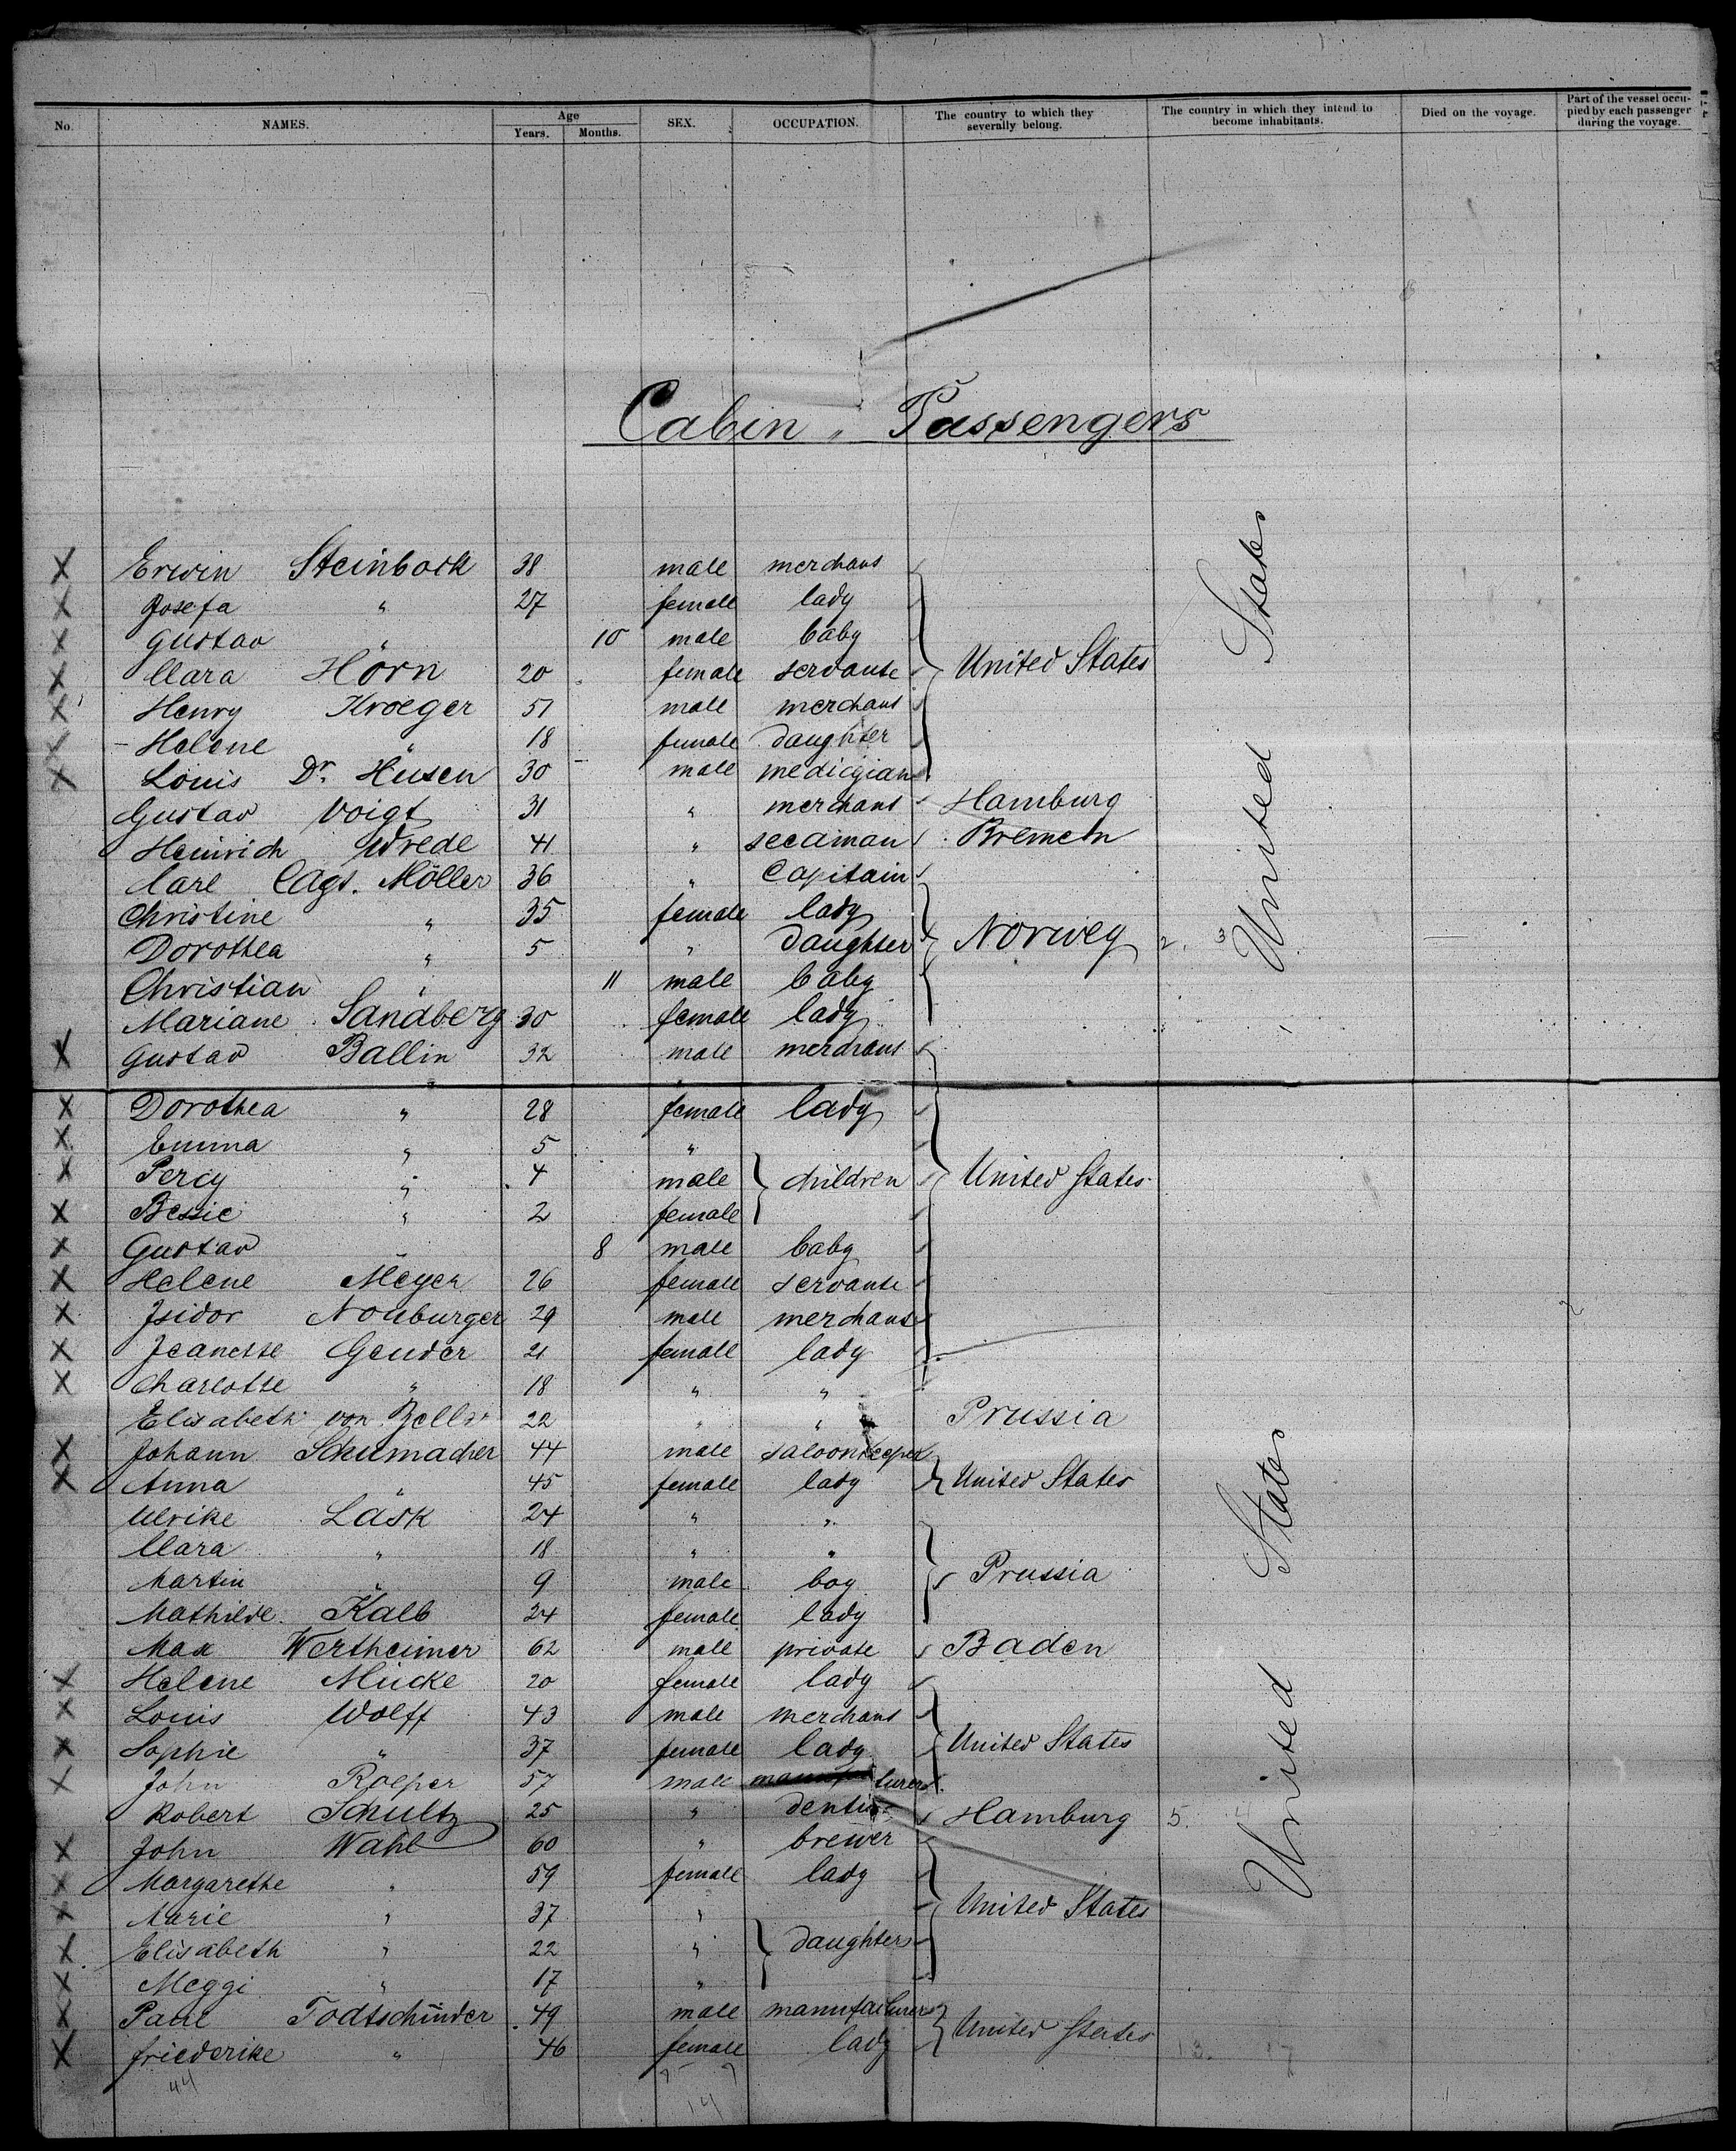 No. NAMES. Age Years. Months. SEX. OCCUPATION. The country to which they severally belong. The country in which they intend to become inhabitants. Died on the voyage. Part of the vessel occupied by each passenger during the voyage.
Cabin Passengers
X Erwin Steinbock 38 male merchant
X Josefa " 27 female lady
X Gustav " 10 male baby
X Clara Horn 20 female servante United States
X Henry Kroeger 51 male merchant
X Helene " 18 female daughter
X Louis Dr. Husen 30 male medicgian
Gustav Voigt 31 " merchant Hamburg
Heinrich Wrede 41 " Bremen
Carl Cagt. Möller 36 " Capitain
Christine " 35 female lady
Dorothea " 5 " daughter Norweg 2. 3
Christian " 11 male baby
Mariane Sandberg 30 female lady
United States
X Gustav Ballin 32 male merchant
X Dorothea " 28 female lady
X Emma " 5 "
X Percy " 4 male children United States
X Bessie " 2 female
X Gustav " 8 male baby
X Helene Meyer 26 female servante
X Isidor Nouburger 29 male merchant
X Jeanette Geuder 21 female lady
X Charlotte " 18 " "
Elisabeth von Zella 22 " " Prussia
X Johann Schumacher 44 male saloonkeeper
X Anna " 45 female lady United States
Ulrike Lask 24 " "
Clara " 18 " "
Martin " 9 male boy Prussia
Mathilde Kalb 24 female lady
Max Wertheimer 62 male private Baden
X Helene Mücke 20 female lady
X Louis Wolff 43 male merchant
X Sophie " 37 female lady United States
X John Roeper 57 male turer
Robert Schultz 25 " dentist Hamburg 5.
X John Wahl 60 " brewer
X Margarethe " 59 female lady
X Marie " 37 " United States
X Elisabeth " 22 " daughters
X Meggi " 17 "
X Paul Todtschinder 49 male manufacturer
X Friederike " 46 female lady United States 13. 17
United States
44
14